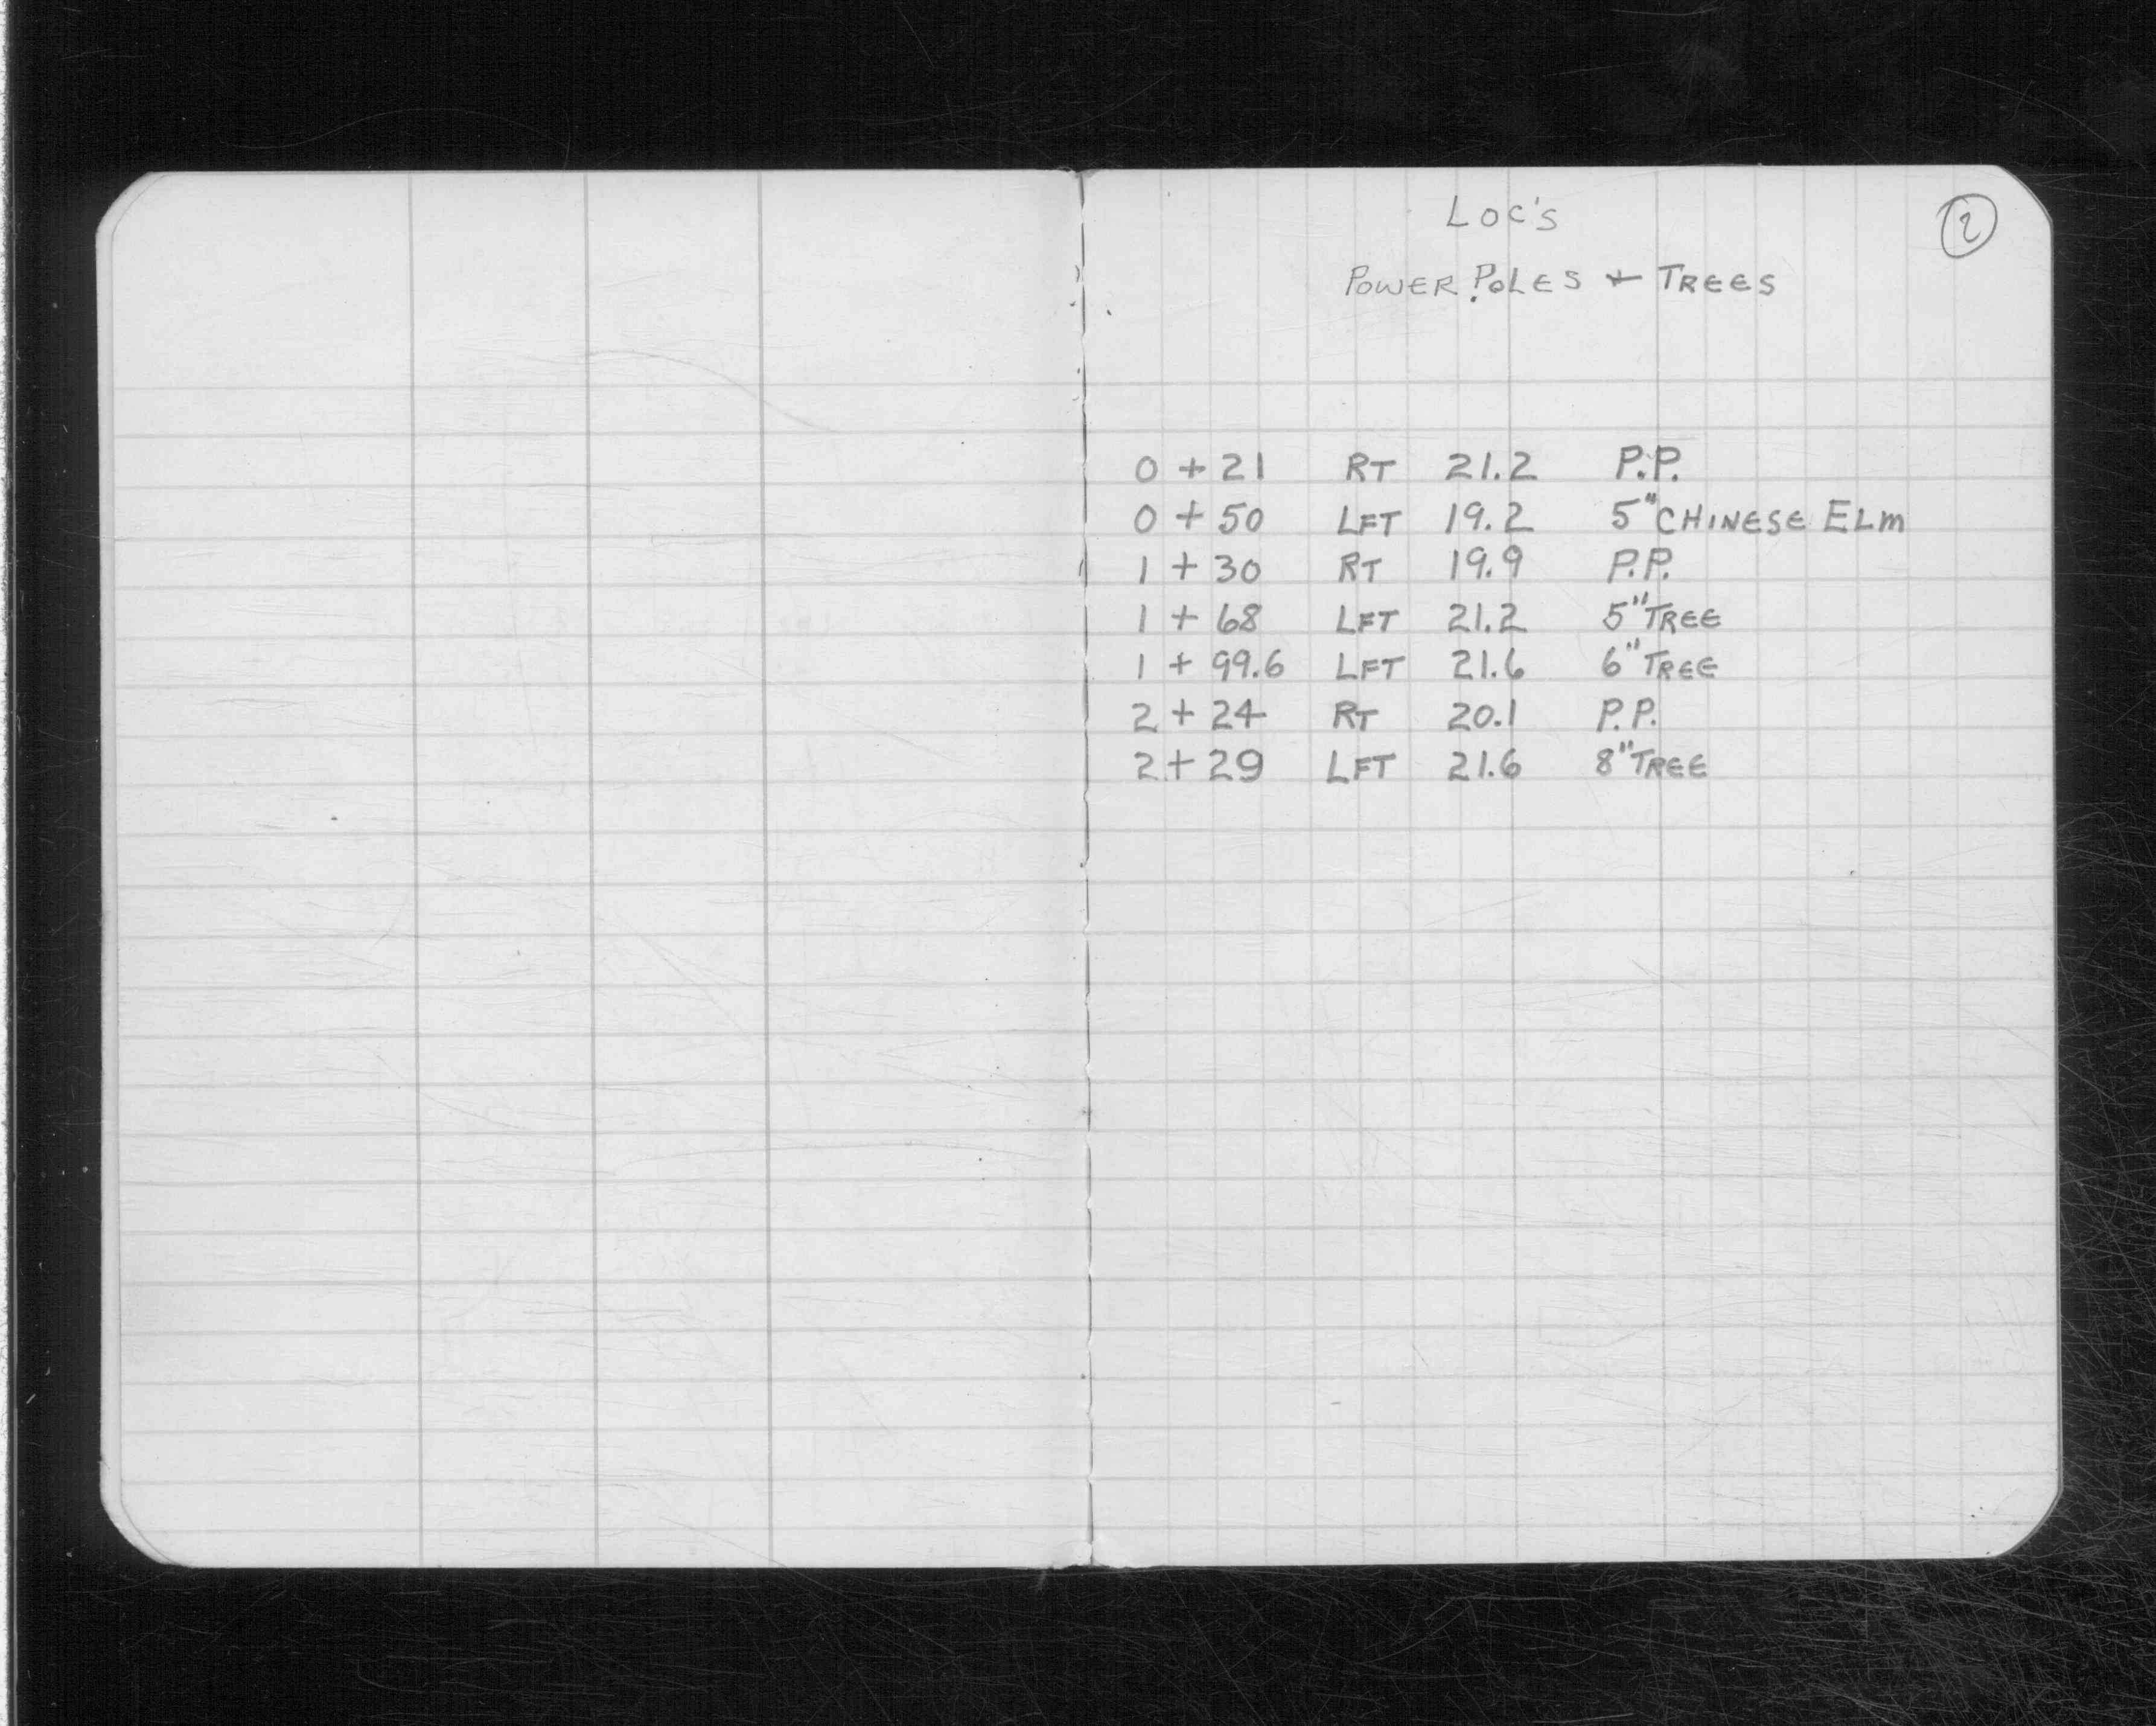 LOC'S
2
POWER POLES + TREES
0 + 21 RT 21.2 P.P.
0 + 50 LFT 19.2 5" CHINESE ELM
1 + 30 RT 19.9 P.P.
1 + 68 LFT 21.2 5" TREE
1 + 99.6 LFT 21.6 6" TREE
2 + 24 RT 20.1 P.P.
2 + 29 LFT 21.6 8" TREE